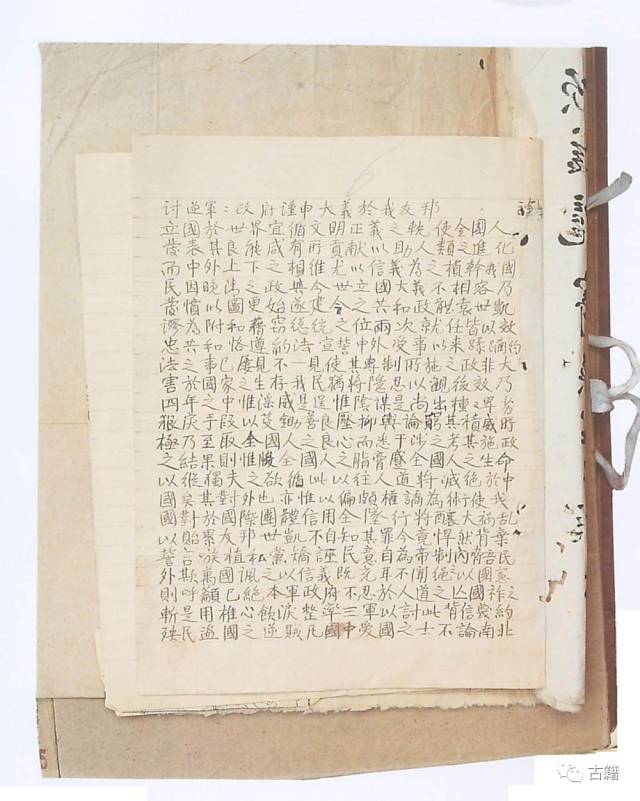 讨逆軍政府謹申大義於我友邦
立國於世界宜循文明正義之軌使全國人
民表其良能咸有所貢献以助人類之進化
而中外上下之相維尤以信義為之楨幹我國
民因晚清之政與今世立國大義不相容乃
憤以圖更始遂建今之共和政體袁世凱
謬為附和藉窃總统之位兩次就任皆以效
忠共和恪遵約法宣誓中外受事以来蹂躏約
法之事已屡見不一見使其專制所施之政非大
害於國家之生存我民猶将隐忍以觀後效乃
四年之中惟淫威是逞惟陰謀是尚出種種卑劣
狠戾手段以芟鋤善良壓抑輿論窮其積威所
極乃至取全國人之良心而悉干涉之考其施政
之结果則惟朘全國人之脂膏盛全國人之生命
以縱獨夫之欲循此以往人道将滅绝於中
國矣其對外也亦惟以偏頗權謫為術使我
國對於國際團體信用全隳行将釀大祸乱
以貽累友邦世凱不自知其罪今竟悍然背棄
誓言嗾植私黨矯誣民意自為帝制内背吾民
外欺萬國諷之以信義既充耳不聞绝以國憲
則呼籲已绝本軍政府不忍於人道之亡國祚之
斬是用椎心飲淚整率三軍以討此背信羲約
殃民過國之逆贼凡國中爱國之士不論南北
古籍